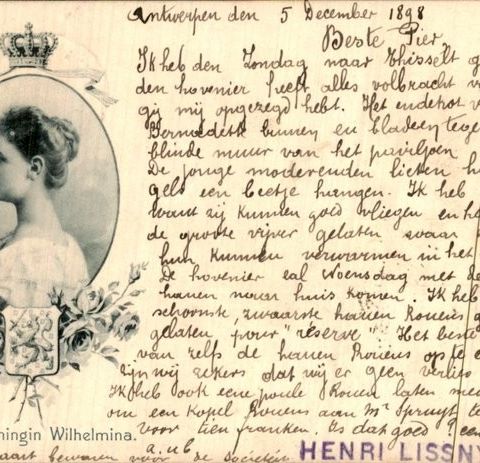 Antwerpen den 5 December 1898
Beste Pier,
Ik heb den Zondag naar Thisselt g
den hovenier heeft alles volbracht v
gij mij opgezegd hebt. Het endekot v
Bernadette binnen en bladeen tege
blinde muur van het paviljoen
De jonge moderenden lieten h
gels een beetje hangen. Ik heb
want zij kunnen goed vliegen en he
de groote vijver gelaten waar
hun kunnen verwarmen in het
De hovenier zal Woensdag met de
hanen naar huis komen. Ik heb
schoonste, zwaarste hanen Rouens g
gelaten pour "réserve" Het beste
van zelfs de hanen Rouens op te e
zijn wij zekers dat wij er geen verlies
Ik heb ook eene poule Rouen laten me
om een kopel Rouens aan Mr Spruyt te
voor tien franken. Is dat goed? een
a.u.b HENRI LISSNY
ningin Wilhelmina.
aart bewaren voor de societeit